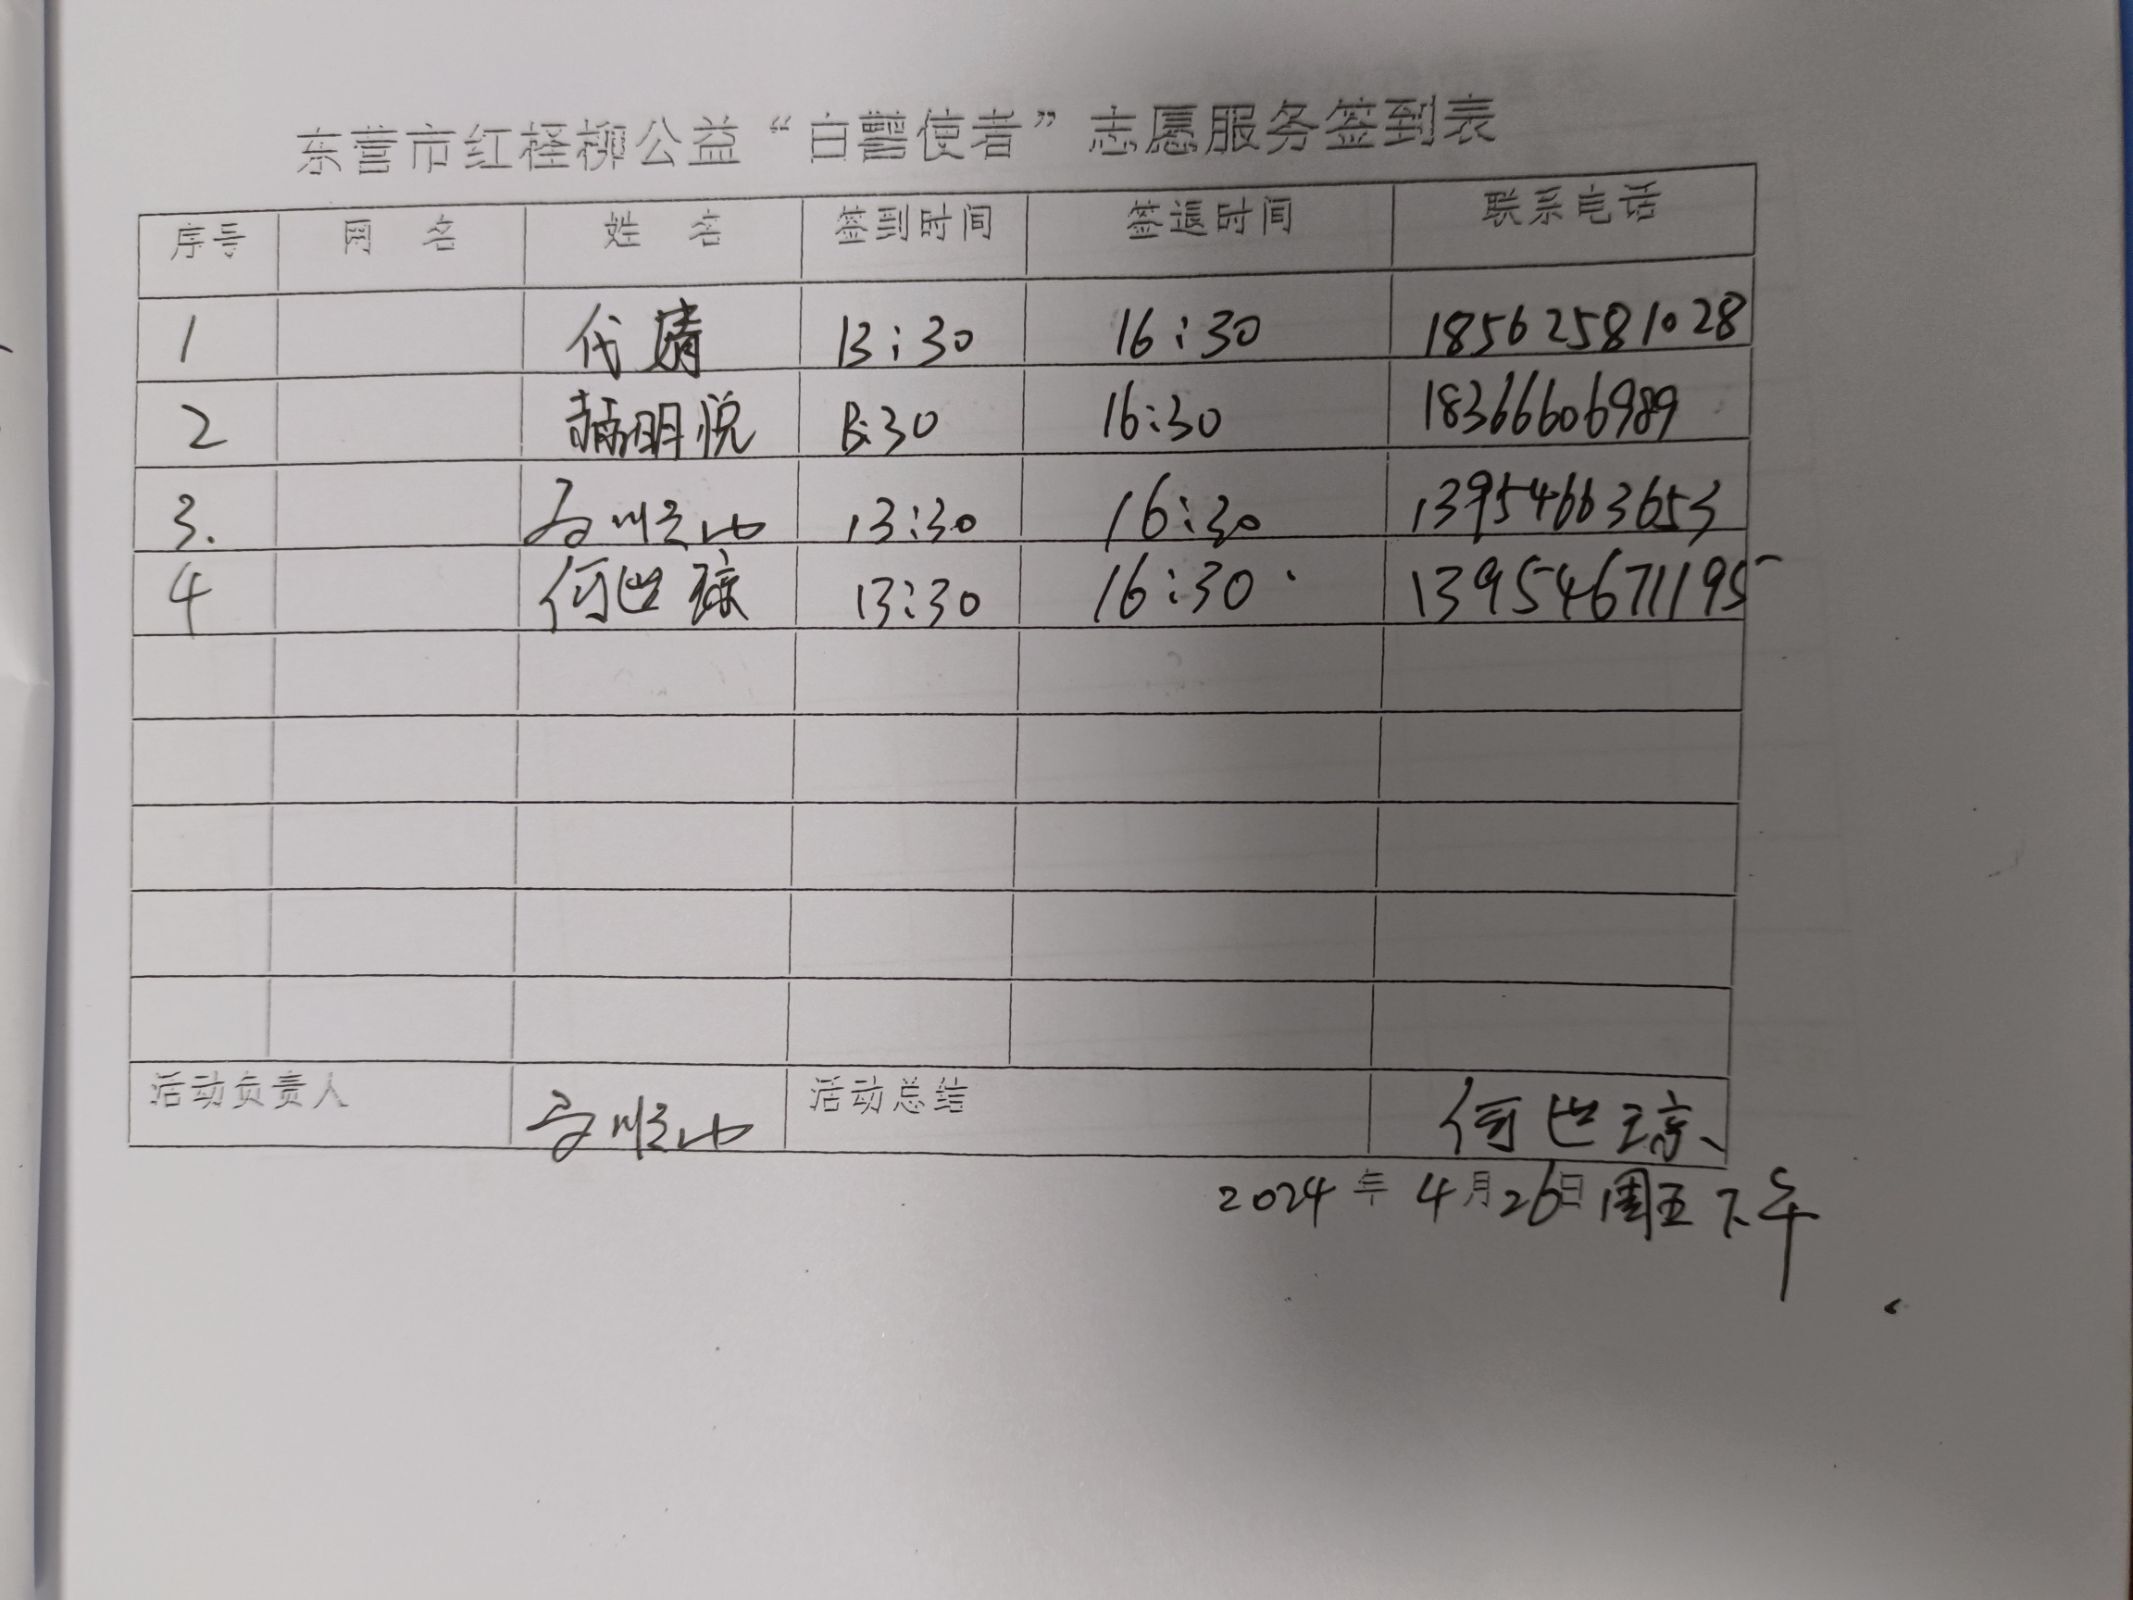 东营市红柽柳公益“白鹭使者”志愿服务签到表
序号 网 名 姓 名 签到时间 签退时间 联系电话
1 代婧 13:30 16:30 18562581028
2 郝明悦 13:30 16:30 18366606989
3. 13:30 16:30 13954663653
4 何世琼 13:30 16:30 13954671195
活动负责人 活动总结 何世琼
2024年4月26日周五下午